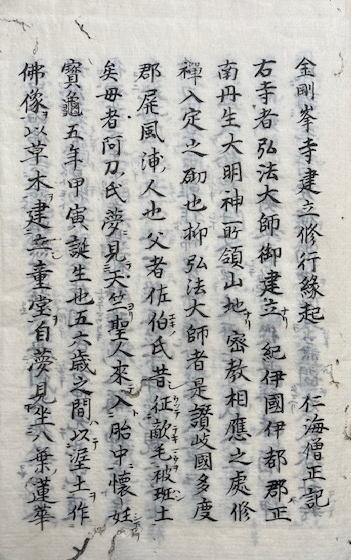 金剛峯寺建立修行縁起　仁海僧正記
右寺者弘法大師御建立ナリ紀伊國伊都郡正
南丹生大明神所領山地ナリ密教相應之處修
禪入定之砌也抑弘法大師者是讚岐國多度
郡屏風浦ノ人也父者佐伯氏昔征敵毛被班土
矣母者阿刀氏夢見天竺ヨリ聖人來入ト胎中懷妊
寶龜五年甲寅誕生也五六歳之間ハ以テ埿土ヲ作
佛像ヲ以草木建童堂ヲ自夢見坐八葉ノ蓮華